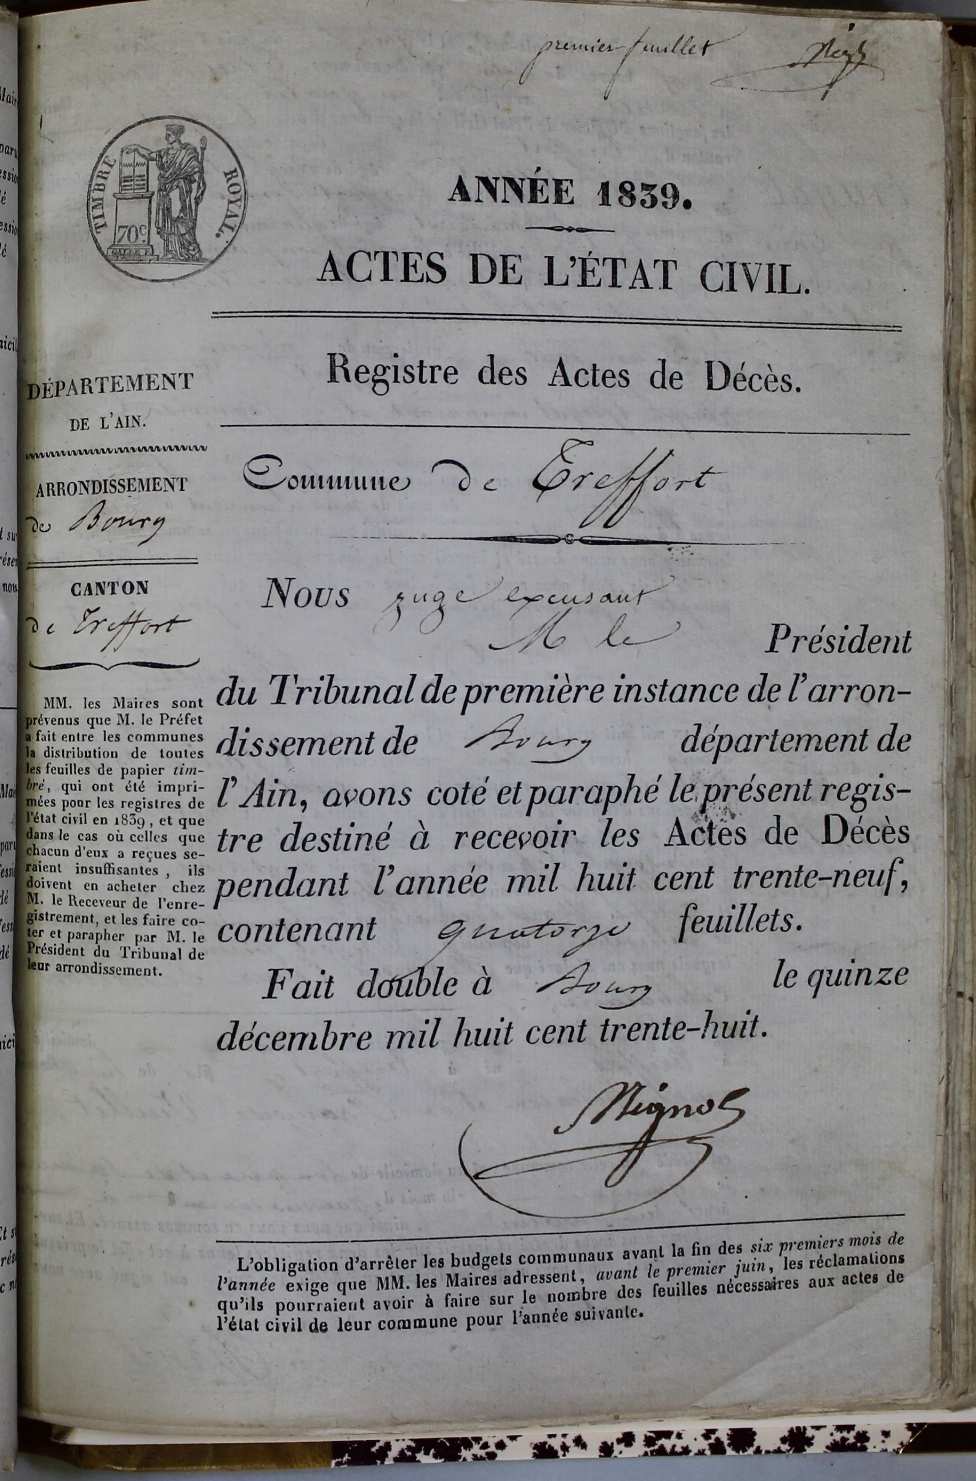 premier feuillet
TIMBRE ROYAL.
70c
ANNÉE 1839.
ACTES DE L'ÉTAT CIVIL.
Registre des Actes de Décès.
Commune de Treffort
DÉPARTEMENT
DE L'AIN.
ARRONDISSEMENT
de Bourg
CANTON
de Treffort
MM. les Maires sont
prévenus que M. le Préfet
a fait entre les communes
la distribution de toutes
les feuilles de papier tim-
bré, qui ont été impri-
mées pour les registres de
l'état civil en 1839, et que
dans le cas où celles que
chacun d'eux a reçues se-
raient insuffisantes, ils
doivent en acheter chez
M. le Receveur de l'enre-
gistrement, et les faire co-
ter et parapher par M. le
Président du Tribunal de
leur arrondissement.
Nous juge excusant
M le Président
du Tribunal de première instance de l'arron-
dissement de Bourg département de
l'Ain, avons coté et paraphé le présent regis-
tre destiné à recevoir les Actes de Décès
pendant l'année mil huit cent trente-neuf,
contenant quatorze feuillets.
Fait double à Bourg le quinze
décembre mil huit cent trente-huit.
L'obligation d'arrêter les budgets communaux avant la fin des six premiers mois de
l'année exige que MM. les Maires adressent, avant le premier juin, les réclamations
qu'ils pourraient avoir à faire sur le nombre des feuilles nécessaires aux actes de
l'état civil de leur commune pour l'année suivante.